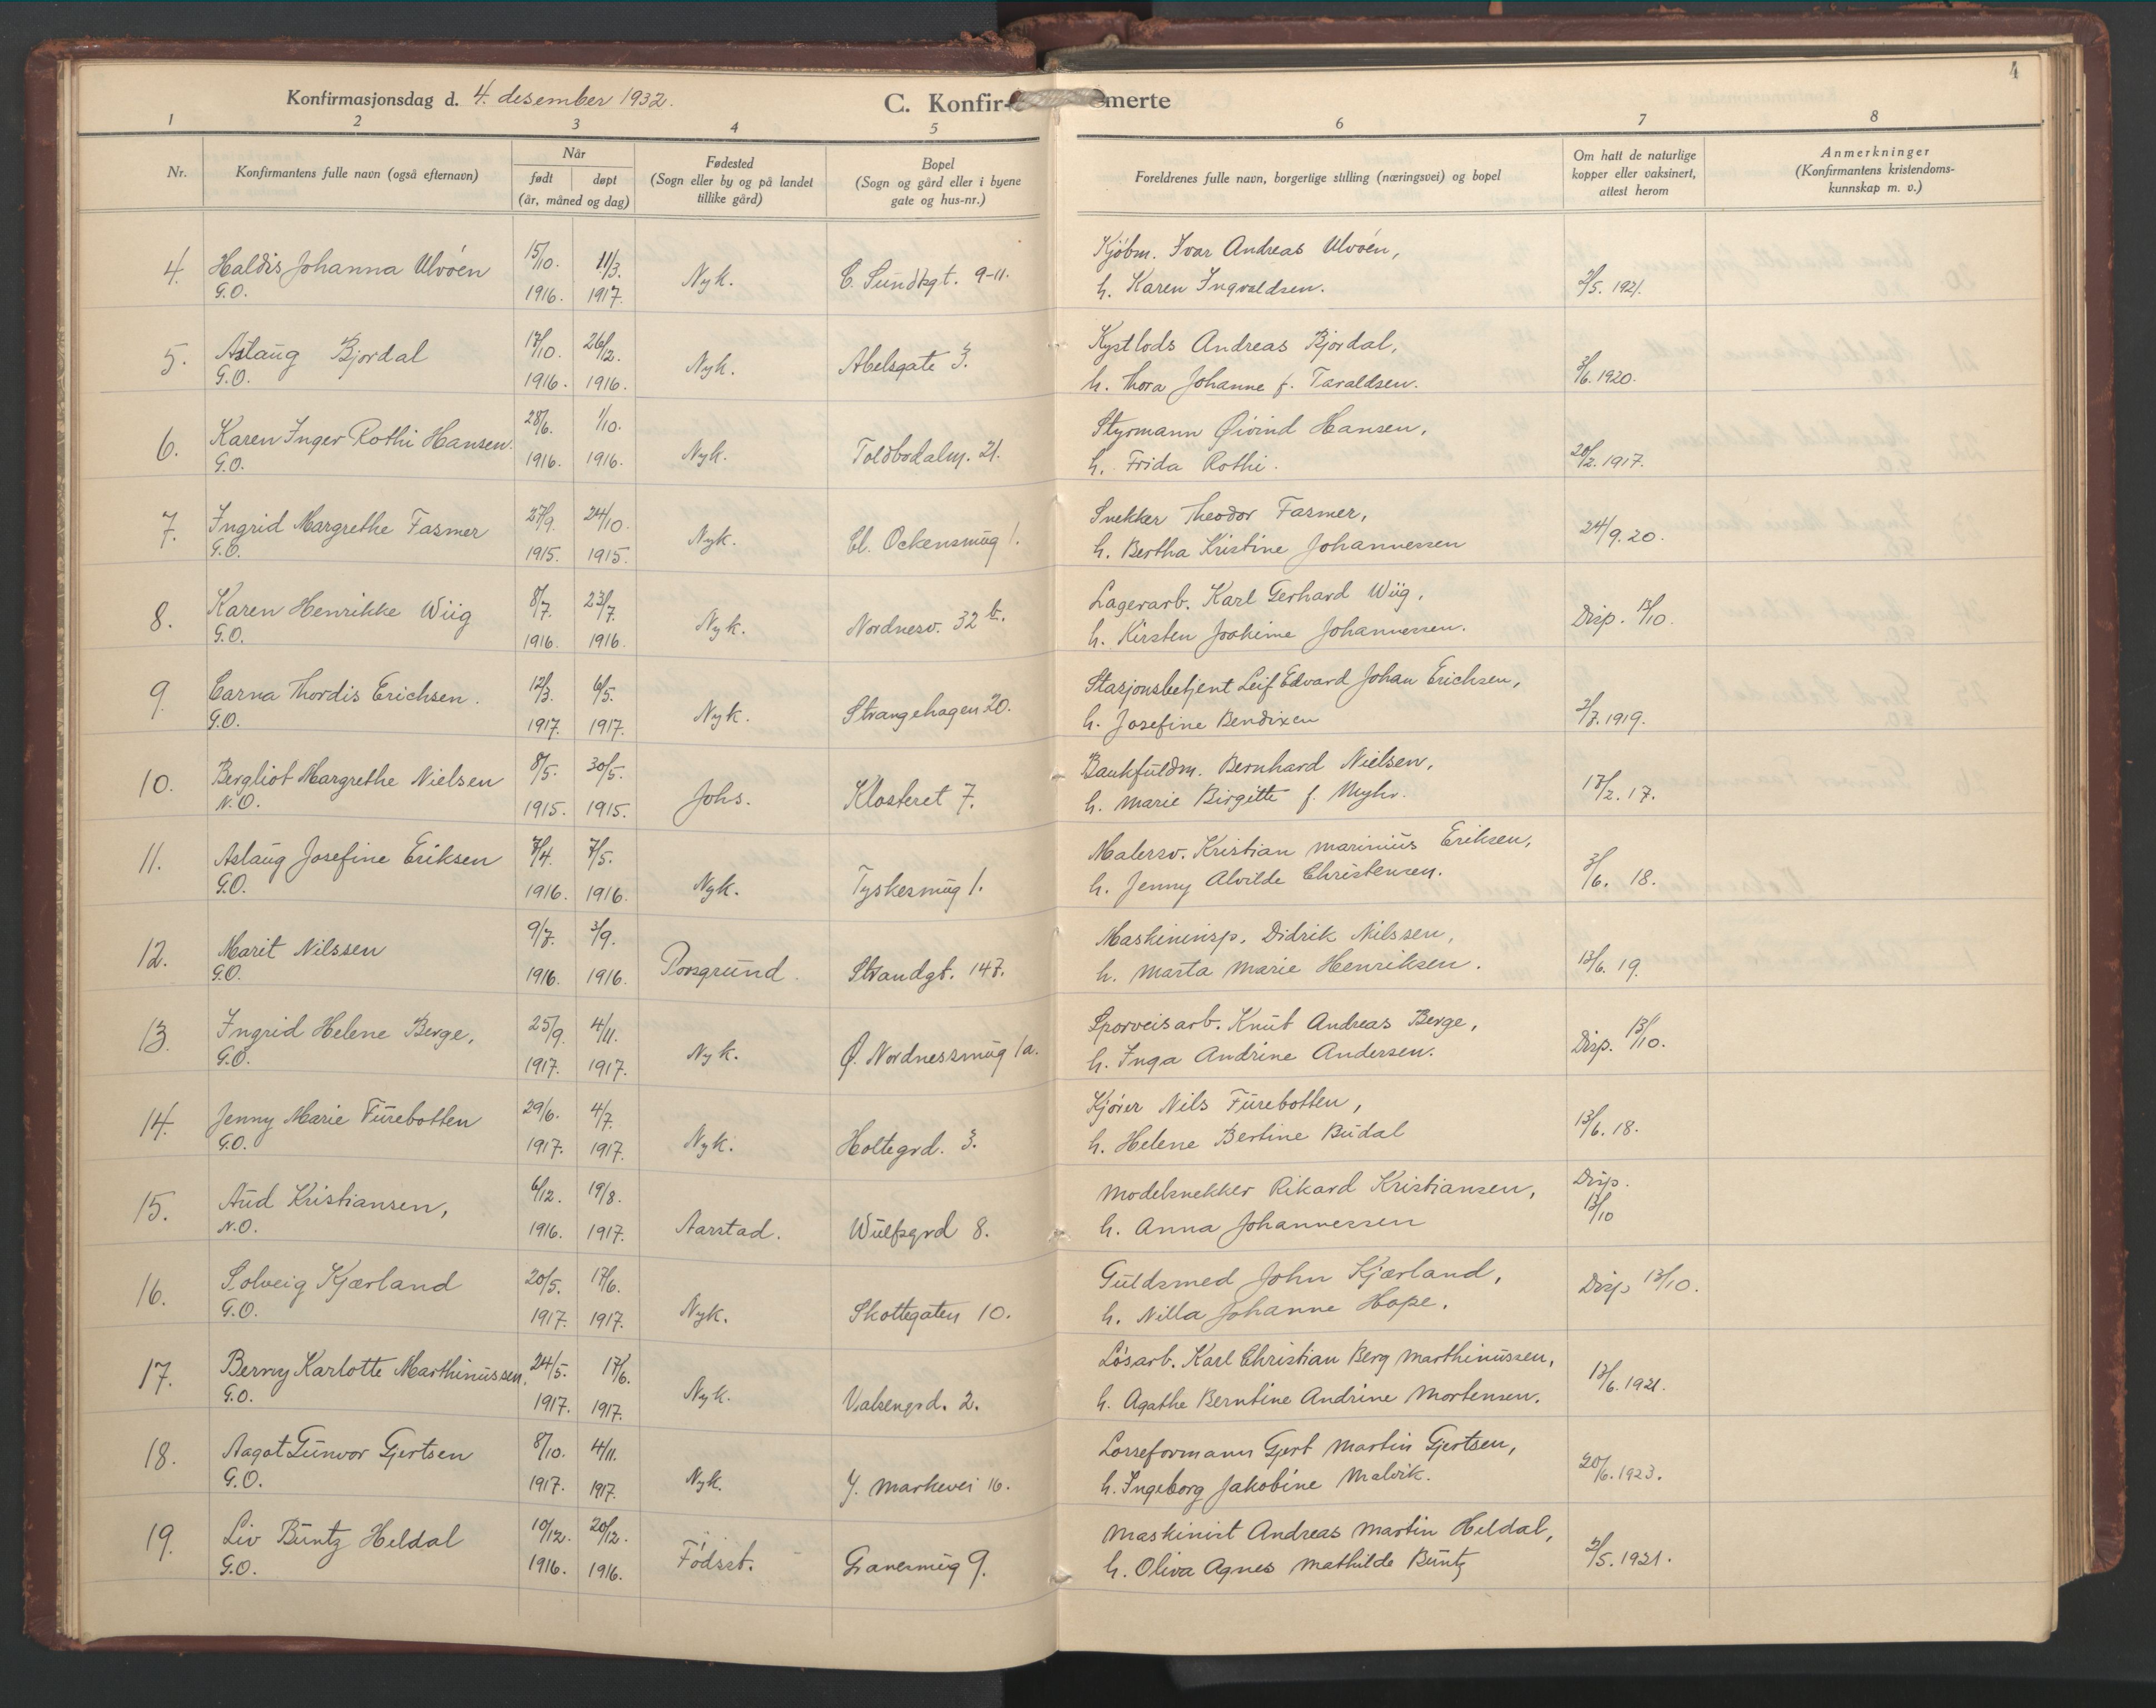 4
Konfirmasjonsdag d. 4. desember 1932.
C. Konfir- merte
1 2 3 4 5 6 7 8
Nr.
Konfirmantens fulle navn (også efternavn)
Når
født døpt
(år, måned og dag)
Fødested
(Sogn eller by og på landet
tillike gård)
Bopel
(Sogn og gård eller i byene
gate og hus-nr.)
Foreldrenes fulle navn, borgerlige stilling (næringsvei) og bopel
Om hatt de naturlige
kopper eller vaksinert,
attest herom
Anmerkninger
(Konfirmantens kristendoms-
kunnskap m. v.)
4. Haldis Johanna Ulvøen 15/10. 11/3. Nyk. C. Sundtsgt. 9-11. Kjøbm. Ivar Andreas Ulvøen,
G.O. 1916. 1917. h. Karen Ingvaldsen. 2/5. 1921.
5. Aslaug Bjordal 17/10. 26/12. Nyk. Abelsgate 3. Kystlods Andreas Bjordal,
G.O. 1916. 1916. h. Thora Johanne f. Taraldsen. 3/6. 1920.
6. Karen Inger Rothi Hansen. 28/6. 1/10. Nyk. Toldbodalm. 21. Styrmann Øivind Hansen,
G.O. 1916. 1916. h. Frida Rothi. 20/2. 1917.
7. Ingrid Margrethe Fasmer 27/9. 24/10. Nyk. Cl. Ockensmug 1. Snekker Theodor Fasmer,
G.O. 1915. 1915. h. Bertha Kristine Johannessen 24/9. 20.
8. Karen Henrikke Wiig 8/7. 23/7. Nyk. Nordnesv. 32 b. Lagerarb. Karl Gerhard Wiig,
G.O. 1916. 1916. h. Kirsten Joakime Johannessen. Disp. 13/10.
9. Carna Thordis Erichsen. 12/3. 6/5. Nyk. Strangehagen 20. Stasjonsbetjent Leif Edvard Johan Erichsen,
G.O. 1917. 1917. h. Josefine Bendixen 2/7. 1919.
10. Bergliot Margrethe Nielsen 8/5. 30/5. Johs. Klosteret 7. Bankfuldm. Bernhard Nielsen,
N.O. 1915. 1915. h. Marie Birgitte f. Myhr. 17/2. 17.
11. Aslaug Josefine Eriksen 7/4. 7/5. Nyk. Tyskesmug 1. Malersv. Kristian Marinius Eriksen,
G.O. 1916. 1916. h. Jenny Alvilde Christensen. 3/6. 18.
12. Marit Nilssen 9/7. 3/9. Porsgrund. Strandgt. 147. Maskininsp. Didrik Nilssen,
G.O. 1916. 1916. h. Marta Marie Henriksen. 13/6. 19.
13. Ingrid Helene Berge, 25/9. 4/11. Nyk. Ø. Nordnessmug 1a. Sporveisarb. Knut Andreas Berge,
G.O. 1917. 1917. h. Inga Andrine Andersen. Disp. 13/10.
14. Jenny Marie Furebotten 29/6. 4/7. Nyk. Holtegrd. 3. Kjører Nils Furebotten,
G.O. 1917. 1917. h. Helene Bertine Budal 13/6. 18.
15. Aud Kristiansen, 6/12. 19/8. Aarstad. Wulfsgrd 8. Modelsnekker Rikard Kristiansen, Disp.
N.O. 1916. 1917. h. Anna Johannessen 13/10
16. Solveig Kjærland 20/5. 17/6. Nyk. Skottegaten 10. Guldsmed John Kjærland,
G.O. 1917. 1917. h. Nilla Johanne Hope. Disp 13/10.
17. Berny Karlotte Marthinussen, 24/5. 17/6. Nyk. Valsengrd. 2. Løsarb. Karl Christian Berg Marthinussen,
G.O. 1917. 1917. h. Agathe Berntine Andrine Mortensen. 13/6. 1921.
18. Aagot Gunvor Gjertsen 8/10. 4/11. Nyk. Y. Markevei 16. Losseformann Gjert Martin Gjertsen,
G.O. 1917. 1917. h. Ingeborg Jakobine Malvik. 20/6. 1923.
19. Liv Buntz Heldal 10/12. 20/12. Fødsst. Granesmug 9. Maskinist Andreas Martin Heldal,
G.O. 1916. 1916. h. Oliva Agnes Mathilde Buntz 2/5. 1921.